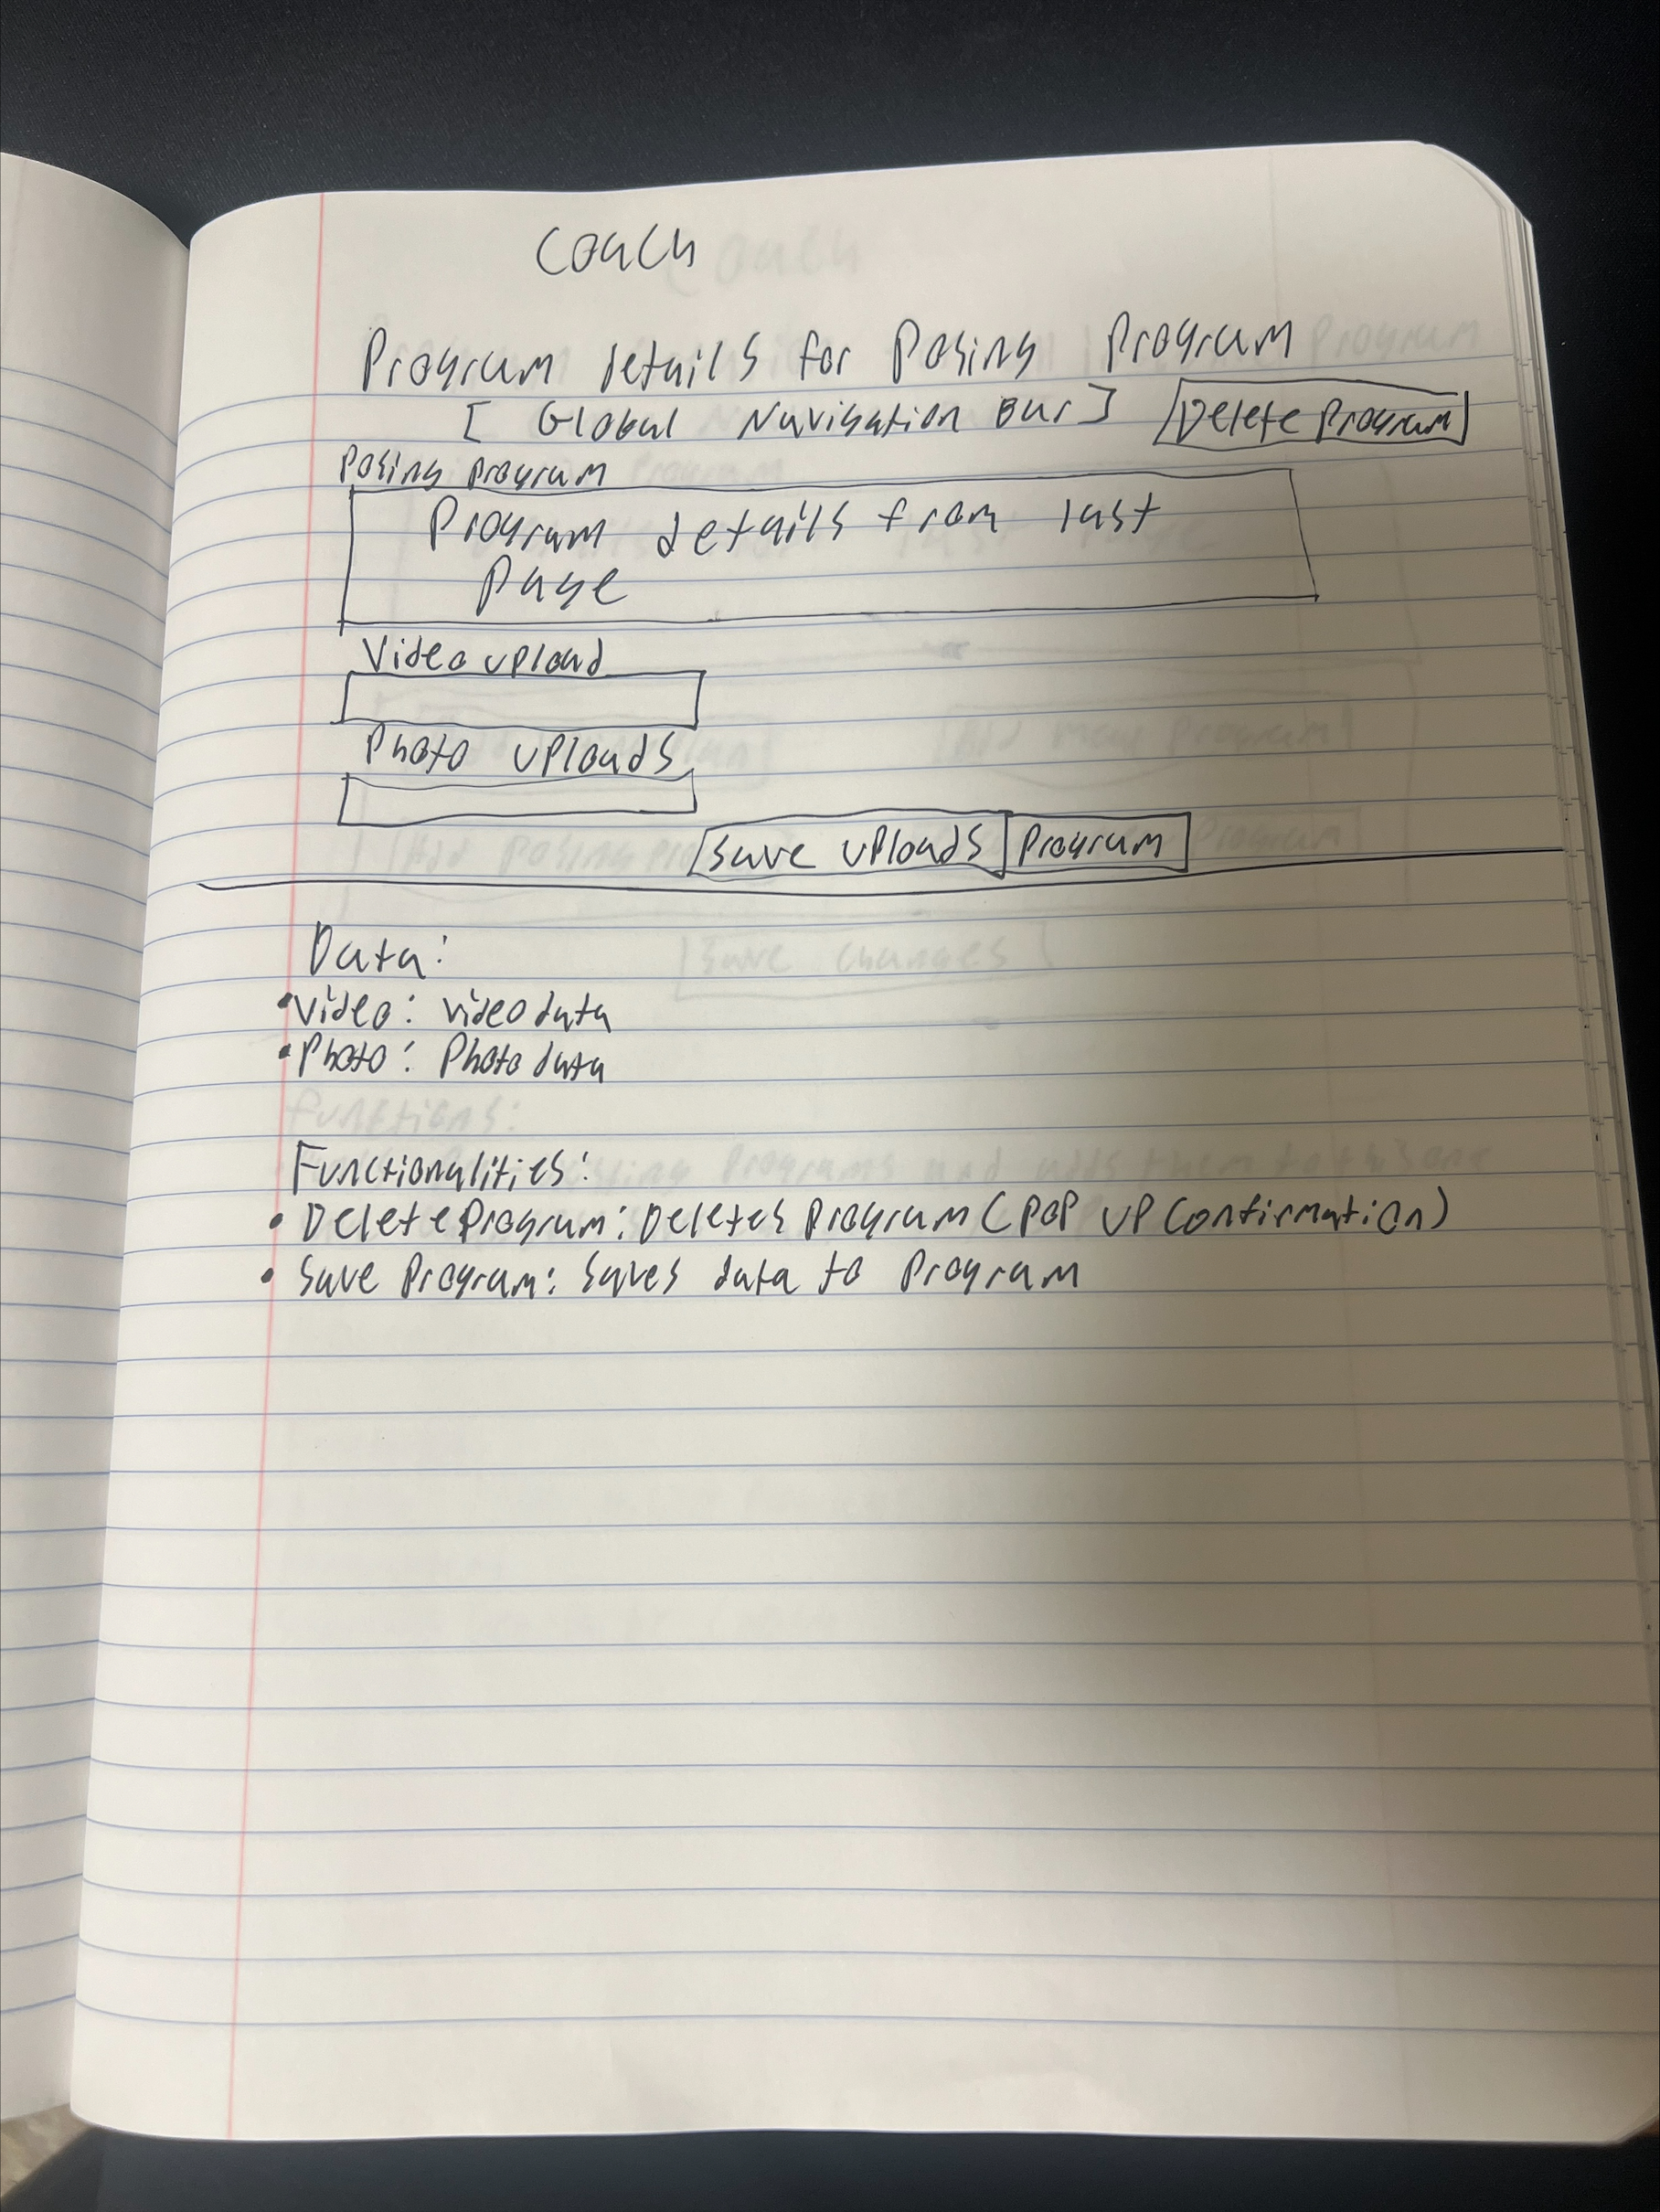 Coach
Program details for Posing Program
[ Global Navigation Bar ] Delete Program
Posing program
Program details from last
Page
Video upload
Photo uploads
Save uploads Program
Data:
• Video: video data
• Photo: Photo data
Functions:
Functionalities:
• Delete Program: Deletes Program (POP UP Confirmation)
• Save Program: Saves data to Program